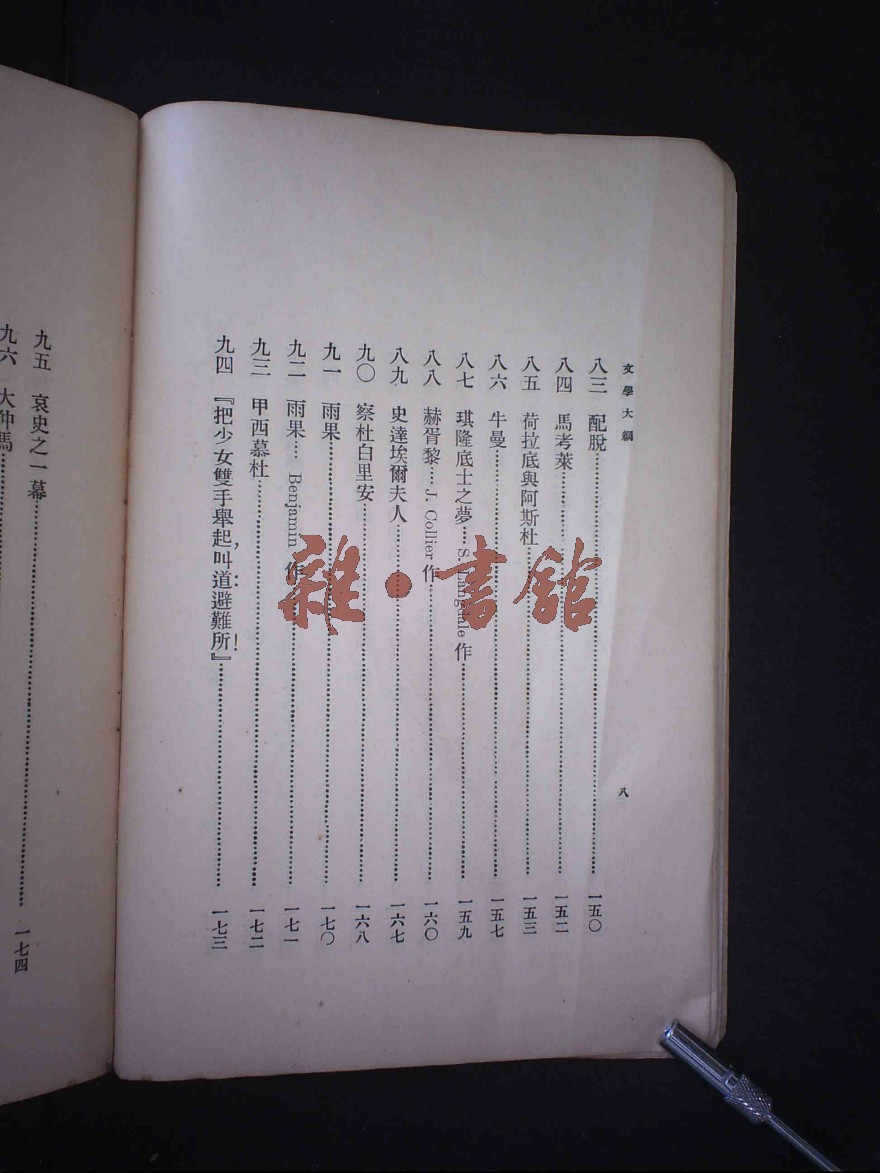 文學大綱
八三 配脫……一五〇
八四 馬考萊……一五二
八五 荷拉底與阿斯杜……一五三
八六 牛曼……一五七
八七 琪隆底士之夢…S. Langdale作……一五九
八八 赫胥黎…J. Collier作……一六〇
八九 史達埃爾夫人……一六七
九〇 察杜白里安……一六八
九一 雨果……一七〇
九二 雨果…Benjamin作……一七一
九三 甲西慕杜……一七二
九四 『把少女雙手舉起，叫道：避難所！』……一七三
八
九五 哀史之一幕……一七四
九六 大仲馬……
雜·書館